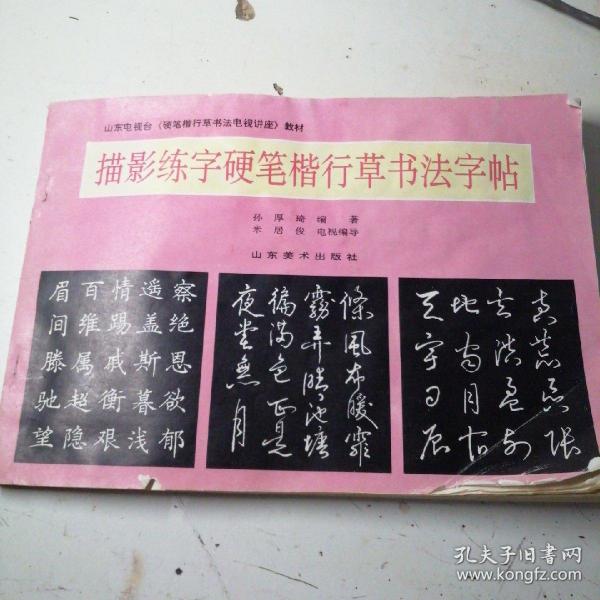 山东电视台《硬笔楷行草书法电视讲座》教材
描影练字硬笔楷行草书法字帖
孙厚琦编 著
米居俊 电视编导
山东美术出版社
眉百情遥察
间维踢盖绝
滕属戚斯恩
驰超衡暮欲
望隐艰浅郁
條風布暖霏
霧弄晴池塘
徧滿色正是
夜堂無月
天地玄黄
宇宙洪荒
日月盈昃
辰宿列張
孔夫子旧书网
www.kongfz.com